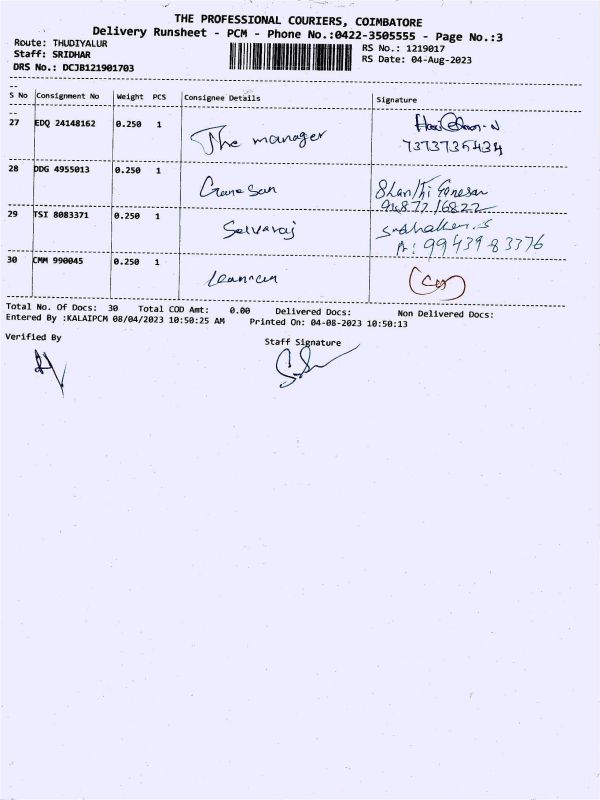 THE PROFESSIONAL COURIERS, COIMBATORE
Delivery Runsheet - PCM - Phone No.:0422-3505555 - Page No.:3
Route: THUDIYALUR
Staff: SRIDHAR
DRS No.: DCJB121901703
RS No.: 1219017
RS Date: 04-Aug-2023
S No Consignment No Weight PCS Consignee Details Signature
27 EDQ 24148162 0.250 1 The manager
7373735434
28 DDG 4955013 0.250 1 Ganesan Shanthi Ganesan
9487716822
29 TSI 8083371 0.250 1 Selvaraj
99439 83376
30 CMM 990045 0.250 1
Total No. Of Docs: 30 Total COD Amt: 0.00 Delivered Docs: Non Delivered Docs:
Entered By :KALAIPCM 08/04/2023 10:50:25 AM Printed On: 04-08-2023 10:50:13
Verified By Staff Signature